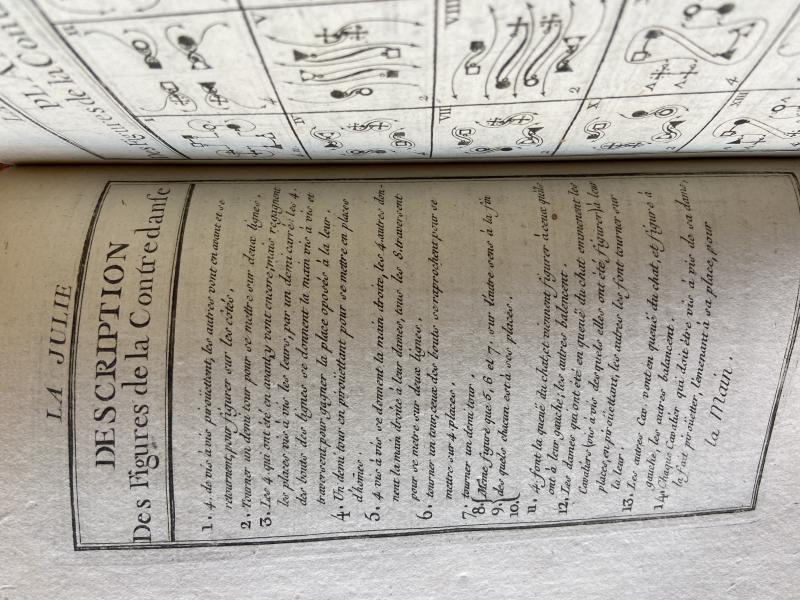 LA JULIE
DESCRIPTION
Des Figures de la Contredanse
1. 4. de vis à vis pirouettent, les autres vont en avant et se
retournent, pour figurer sur les côtés.
2. Tourner un demi tour pour se mettre sur deux lignes.
3. Les 4. qui ont été en avant, y vont encore, mais regagnent
les places vis à vis les leurs, par un demi carré: les 4.
des bouts des lignes se donnent la main vis à vis et
traversent pour gagner la place oposés à la leur.
4. Un demi tour en pirouettant pour se mettre en places
d'homes.
5. 4 vis à vis se donnent la main droite, les 4 autres don-
nent la main droite à leur dames, tous les 8. traversent
pour se metre sur deux lignes.
6. tourner un tour, ceux des bouts se raprochent pour se
mettre sur 4. places.
7. tourner un demi tour.
8. Même figure que 5, 6 et 7. sur l'autre sens à la fin
9. des quels chacun est à ses places.
10.
11. 4 font la queuë du chat, et viennent figurer à ceux qu'ils
ont à leur gauche; les autres balancent.
12. Les dames qui ont été en queuë du chat emmenent les
Cavaliers vis à vis desquels elles ont été figurer à leur
places, en pirouettant, les autres les font tourner sur
la leur.
13. Les autres Cav. vont en queuë du chat, et figure à
gauche, les autres balancent.
14. Chaque Cavalier qui doit être vis à vis de sa dame,
la fait pirouetter, l'emenant à sa place, pour
la Main.
PLA
Des figures de la Conte
II
I
4
V
IV
2
VIII
VII
2
X
4
XIII